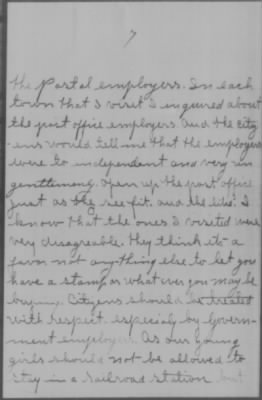 7
the Postal employers. In each
town that I visit I inquired about
the post office employers and the City
-ens would tell me that the employers
were to independent and very un
gentlemong. Open up the post office
just as they see fit. and the like. I
know that the ones I visited were
very disagreable. they think its a
favor not anything else to let you
have a stamp or what ever you may be
buying. Citizens should be treated
with respect especialy by Govern-
ment employers. As our young
girls should not be allowed to
stay in a railroad station but